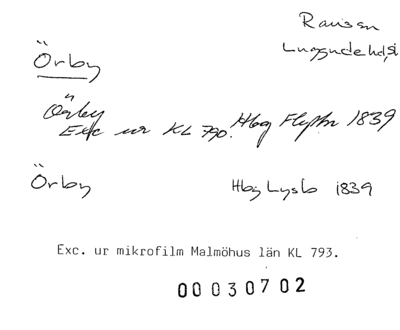 Raussn
Luggude hd, Si
Örby
Örby
Exc ur KL 790. Hbg Flyttn 1839
Örby Hbg Lysb 1839
Exc. ur mikrofilm Malmöhus län KL 793.
00030702